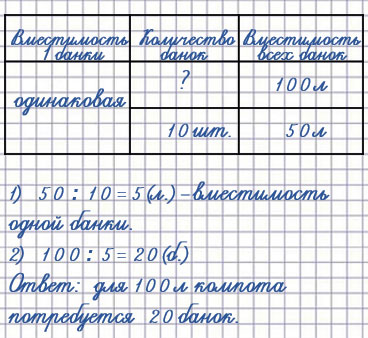 Вместимость 1 банки Количество банок Вместимость всех банок
одинаковая ? 100 л
10 шт. 50 л
1) 50 : 10 = 5 (л.) – вместимость
одной банки.
2) 100 : 5 = 20 (б.)
Ответ: для 100 л компота
потребуется 20 банок.